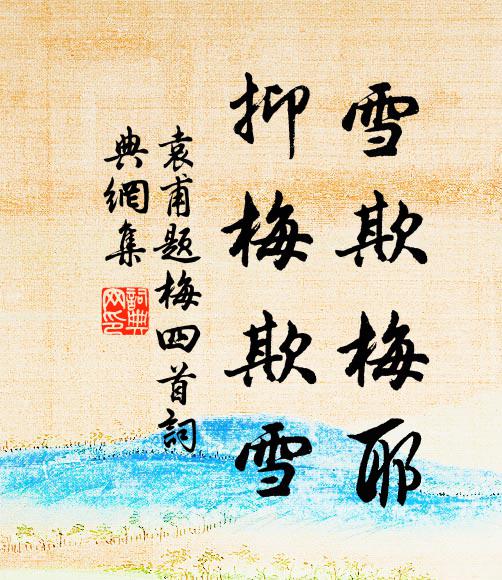 雪欺梅耶
抑梅欺雪
袁甫题梅四首詞
典網集
詞典
网印